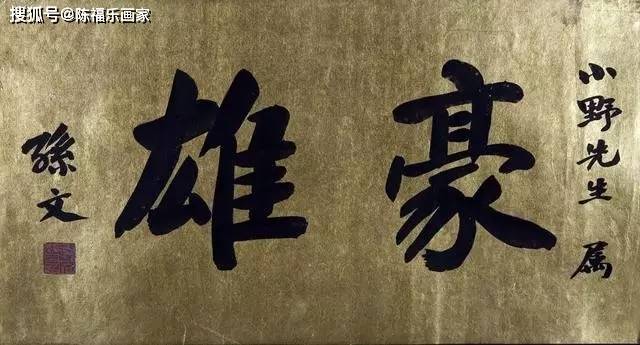 搜狐号@陈福乐画家
小野先生 属
豪雄
孫文